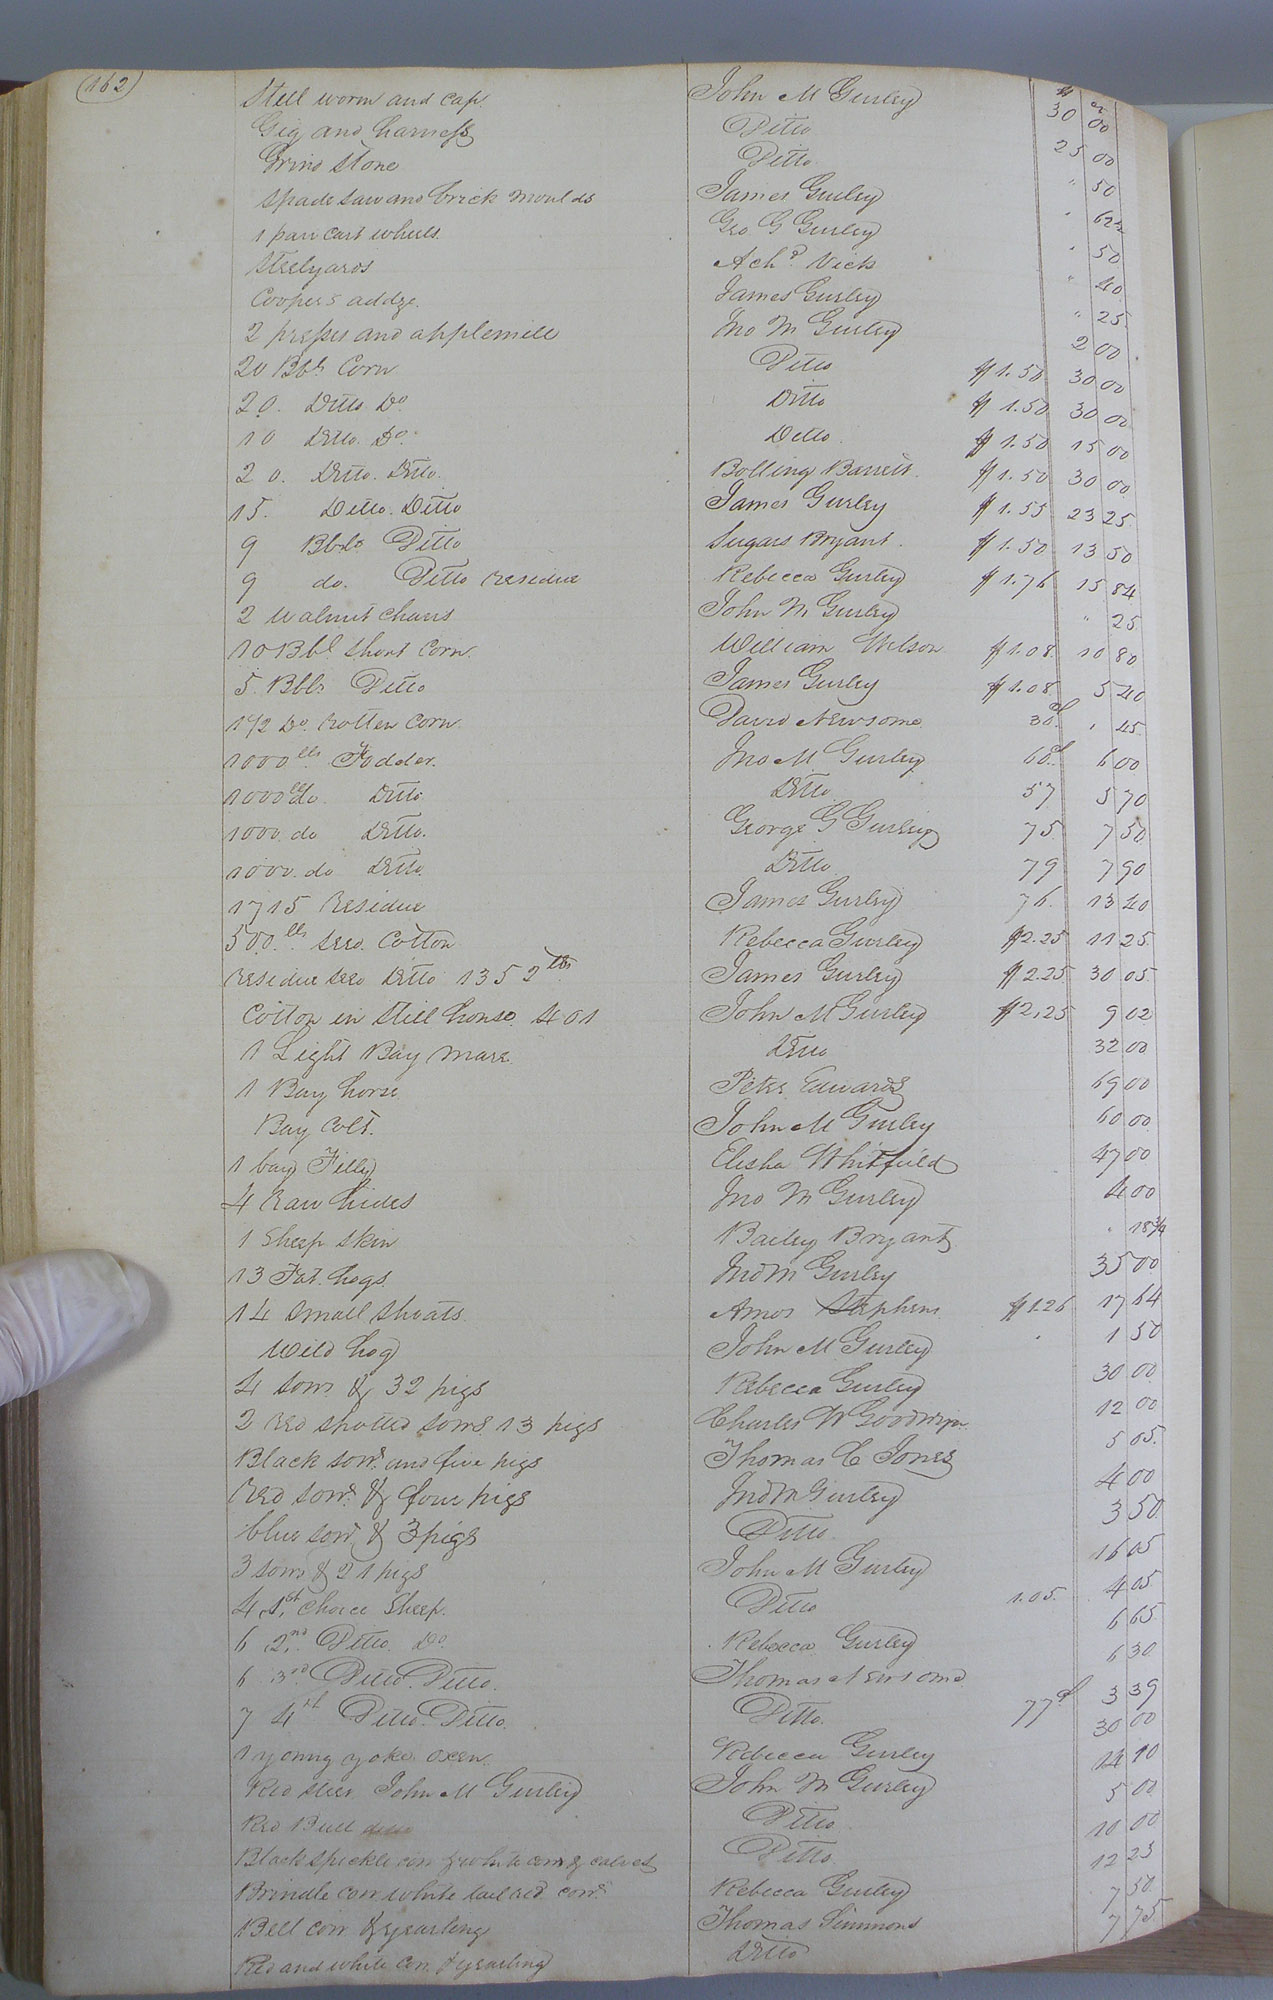 162
$ cts
Still worm and cap. John M Gurley 30 00
Gig and harness Ditto 25 00
Grind Stone Ditto " 50
Spade saw and brick moulds James Gurley " 62½
1 pair cart wheels. Geo G Gurley " 50
Steelyards Achd Vick " 40
Coopers addze. James Gurley " 25
2 presses and applemill Jno M Gurley 2 00
20 Bbls Corn Ditto $1.50 30 00
20. Ditto Do. Ditto $1.50 30 00
10 Ditto. Do. Ditto. $1.50 15 00
20. Ditto. Ditto. Bolling Barrett. $1.50 30 00
15. Ditto. Ditto James Gurley $1.55 23 25
9 Bbls Ditto Sugars Bryant. $1.50 13 50
9 do. Ditto residue Rebecca Gurley $1.76 15 84
2 walnut chairs John M Gurley " 25
10 Bbl. Short Corn. William Wilson $1.08 10 80
5. Bbls Ditto James Gurley $1.08 5 40
1 1/2 Do. rotten corn. David Newsome 30d. " 45
1000 lbs Fodder. Jno M Gurley 60d 6 00
1000 lbs do. Ditto Ditto 57 5 70
1000 do Ditto. George G Gurley 75 7 50
1000. do Ditto. Ditto 79 7 90
1715 Residue James Gurley 76. 13 40
500. lbs seed Cotton Rebecca Gurley $2.25 11 25
residue seed Ditto 1352 lbs James Gurley $2.25 30 05
Cotton in Still house 401 John M Gurley $2.25 9 02
1 Light Bay mare Ditto 32 00
1 Bay horse Peter Edwards 69 00
Bay Colt. John M Gurley 60 00
1 bay Filly Elisha Whitfield 47 00
4 Raw hides Jno M Gurley 4 00
1 Sheep skin Bailey Bryant " 18¾
13 Fat. hogs. Jno M Gurley 35 00
14 small shoats Amos Stephens $1.26 17 64
Wild hog John M Gurley 1 50
4 sows & 32 pigs Rebecca Gurley 30 00
2 red spotted sows 13 pigs Charles W Goodwyn 12 00
Black sow. and five pigs Thomas C Jones 5 05.
Red sow. & four pigs Jno M Gurley 4 00
blue sow. & 3 pigs Ditto 3 50
3 sows & 21 pigs John M Gurley 16 05
4. 1st. choice Sheep. Ditto 1.05. 4 05
6 2nd. Ditto. Do. Rebecca Gurley 6 65
6 3rd. Ditto. Ditto. Thomas Newsome 6 30
7 4th Ditto. Ditto. Ditto. 77d 3 39
1 young yoke oxen. Rebecca Gurley 30 00
Red steer John M Gurley John M Gurley 14 10
Red Bull Ditto 5 00
Black speckle cow & white cow & calves Ditto 10 00
Brindle cow white tail red cow. Rebecca Gurley 12 25
Bell cow & yearling Thomas Simmons 7 50
Red and white cow & yearling Ditto 7 75